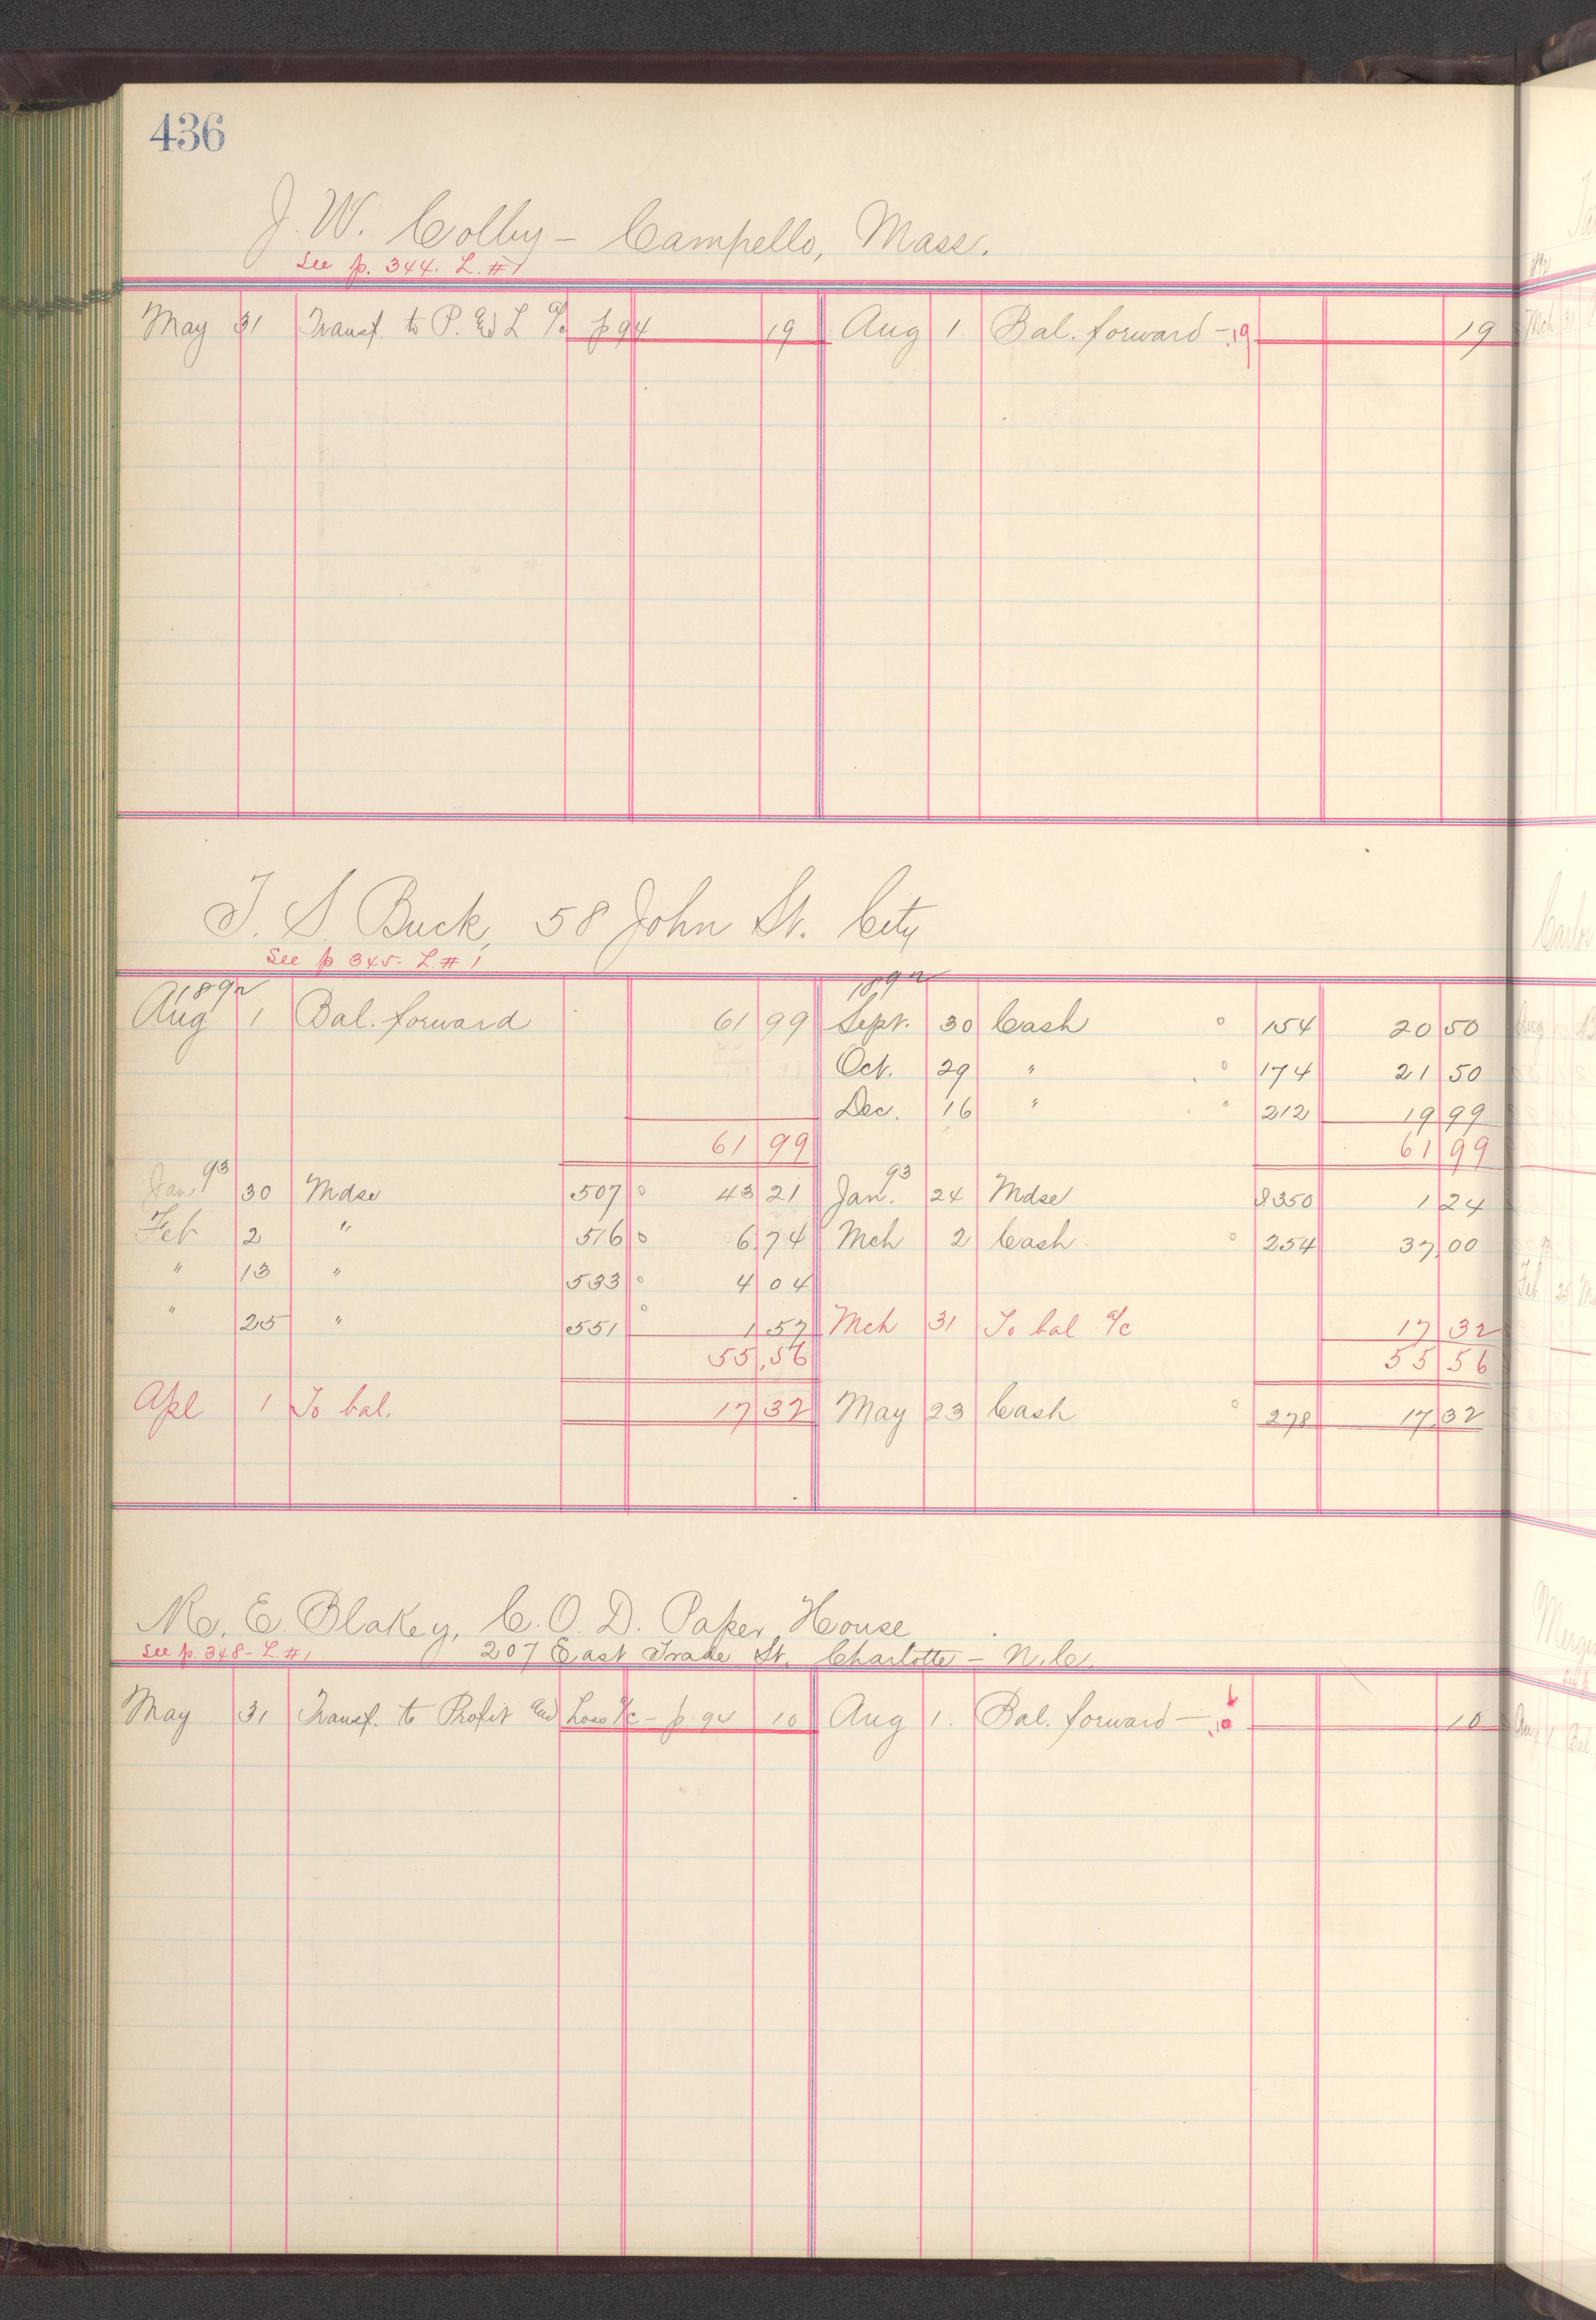 436
J. W. Colby - Campello, Mass.
See p. 344. L. #1
May 31 Transf. to P. and L a/c p 94 19 Aug 1. Bal. forward - .19 19
T. S. Buck, 58 John St. City
See p 345. L. #1
1892 1892
Aug 1 Bal. forward 61 99 Sept. 30 Cash 154 20 50
Oct. 29 " 174 21 50
Dec. 16 " 212 19 99
61 99 61 99
Jan 93 30 Mdse 507 43 21 Jan. 93 24 Mdse 350 1 24
Feb 2 " 516 6 74 Mch 2 Cash 254 37 00
" 13 " 533 4 04
" 25 " 551 1 57 Mch 31 To bal a/c 17 32
55.56 55 56
Apl 1 To bal. 17 32 May 23 Cash 278 17 32
E. Blakey, C. O. D. Paper House
See p. 348 - L. #1 207 East Trade St. Charlotte - N.C.
May 31 Transf. to Profit and Loss a/c - p. 94 10 Aug 1. Bal. forward - .10 10